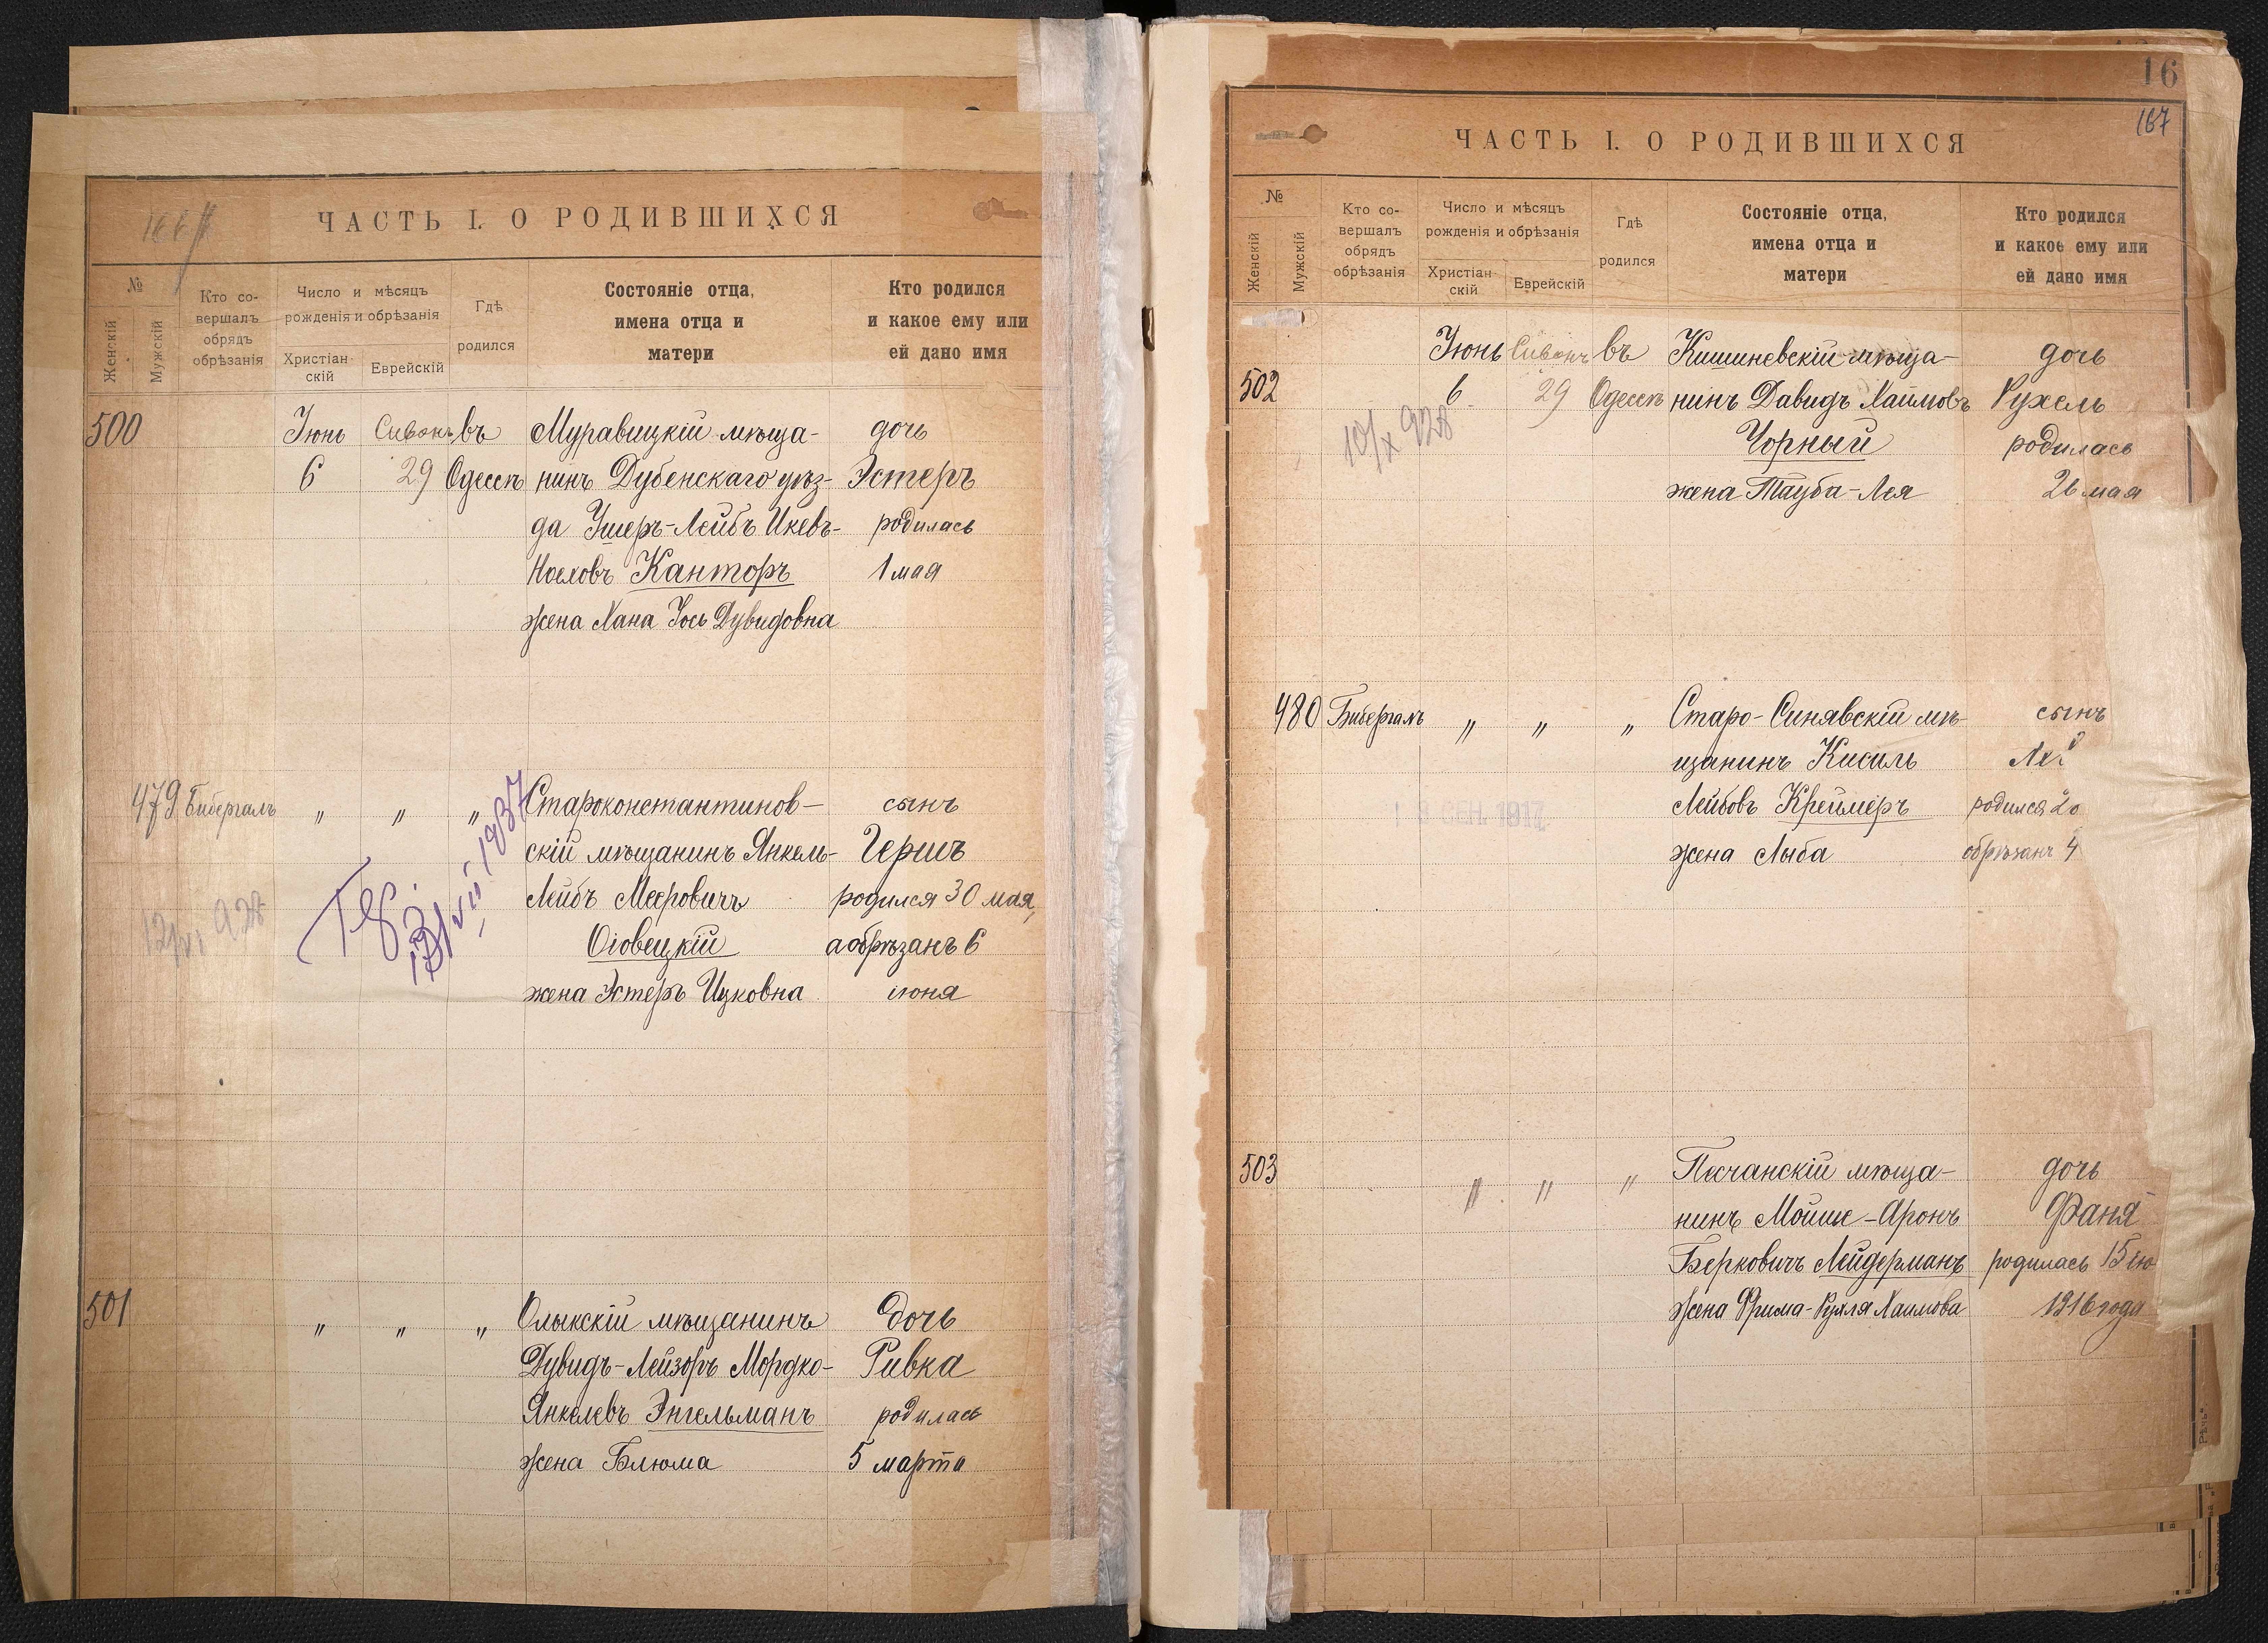 ЧАСТЬ I. О РОДИВШИХСЯ
№
Женскій
Мужскій
Кто со-
вершалъ
обрядъ
обрѣзанія
Число и мѣсяцъ
рожденія и обрѣзанія
Христіан-
скій
Еврейскій
Гдѣ
родился
Состояніе отца,
имена отца и
матери
Кто родился
и какое ему или
ей дано имя
500 Іюнь Сиванъ въ Муравицкій мѣща- дочь
6 29 Одессѣ нинъ Дубенскаго уѣз- Эстеръ
да Ушеръ-Лейбъ Икевъ- родилась
Канторъ 1 мая
жена Хана Дувидовна
479 Бибергалъ " " " Староконстантинов- сынъ
скій мѣщанинъ Янкель- Гершъ
Лейбъ Меровичъ родился 30 мая,
Оіовецкій а обрѣзанъ 6
жена Эстеръ Ицковна іюня
12/VI 928
13/VII 1937
501 " " " Олыкскій мѣщанинъ дочь
Дувидъ-Лейзоръ Мордко- Ривка
Янкелевъ Энгельманъ родилась
жена Блюма 5 марта
16
167
ЧАСТЬ I. О РОДИВШИХСЯ
№
Женскій
Мужскій
Кто со-
вершалъ
обрядъ
обрѣзанія
Число и мѣсяцъ
рожденія и обрѣзанія
Христіан-
скій
Еврейскій
Гдѣ
родился
Состояніе отца,
имена отца и
матери
Кто родился
и какое ему или
ей дано имя
Іюнь Сиванъ въ Кишиневскій мѣща- дочь
502 6 29 Одессѣ нинъ Давидъ Хаимовъ Рухель
10/X 928 Чорный родилась
жена Тауба-Лея 26 мая
480 Бибергалъ " " " Старо-Синявскій мѣ- сынъ
щанинъ Кисиль
Лейбовъ Креймеръ родился 20
жена Лыба обрѣзанъ 4
СЕН. 1917
503 " " " Песчанскій мѣща- дочь
нинъ Мойше-Аронъ Фаня
Берковичъ Лейдерманъ родилась 15 ію
жена Фрима-Рухля Хаимова 1916 года